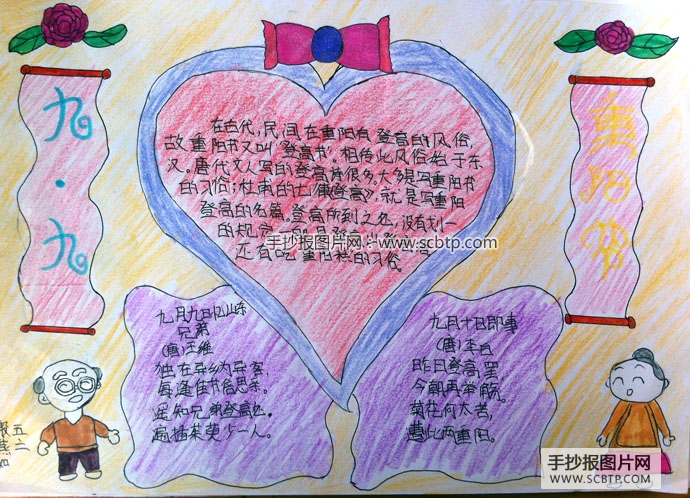 九·九
重阳节
在古代,民间在重阳有登高的风俗,
故重阳节又叫"登高节"。相传此风俗始于东
汉。唐代文人写的登高诗很多,大多是写重阳节
的习俗;杜甫的七律《登高》,就是写重阳
登高的名篇。登高所到之处,没有划一
的规定
手抄报图片网：www.scbtp.com
还有吃"重阳糕"的习俗。
九月九日忆山东
兄弟
(唐)王维
独在异乡为异客,
每逢佳节倍思亲。
遥知兄弟登高处,
遍插茱萸少一人。
九月十日即事
(唐)李白
昨日登高罢,
今朝再举觞。
菊花何太苦,
遭此两重阳。
五
二
手抄报图片网
SCBTP.COM